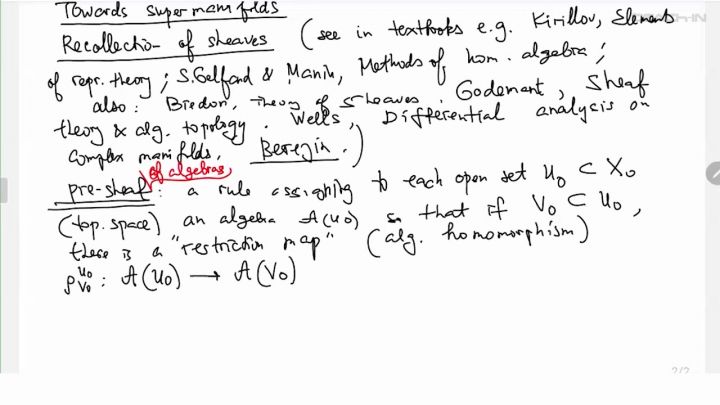 Towards supermanifolds
Recollection of sheaves (see in textbooks e.g. Kirillov, Elements
of repr. theory; S.Gelfand & Manin, Methods of hom. algebra;
also: Bredon, Theory of Sheaves. Godemant, Sheaf
theory & alg. topology. Wells, Differential analysis on
complex manifolds, Berezin.)
of algebras
pre-sheaf: a rule assigning to each open set U₀ ⊂ X₀
(top. space) an algebra A(U₀) so that if V₀ ⊂ U₀,
there is a "restriction map" (alg. homomorphism)
ρ^{U₀}_{V₀}: A(U₀) → A(V₀)
2/2